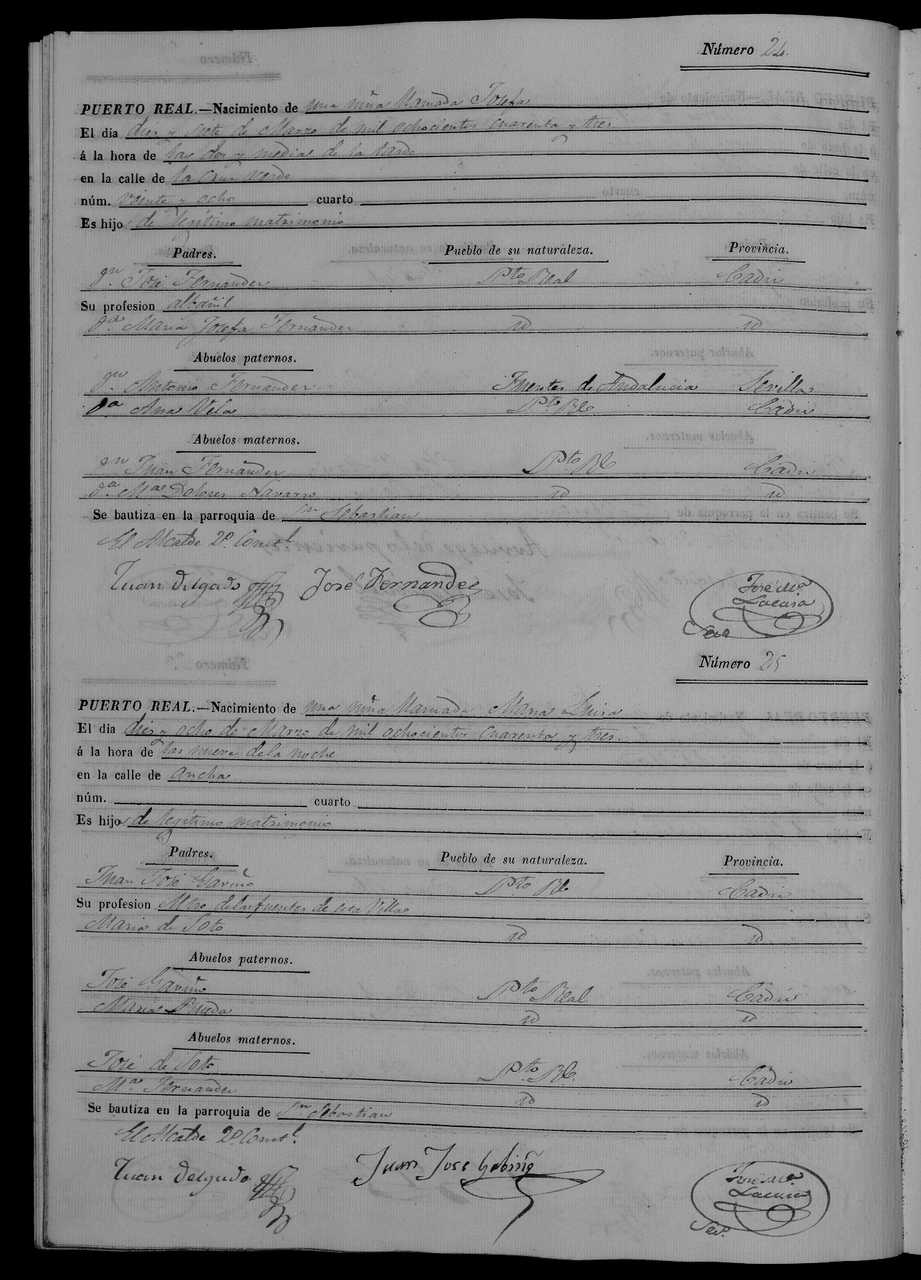 Número 24.
PUERTO REAL.—Nacimiento de una niña llamada Josefa
El día diez y siete de Marzo de mil ochocientos cuarenta y tres
á la hora de las dos y media de la tarde
en la calle de la Cruz Verde
núm. veinte y ocho cuarto
Es hijo de legítimo matrimonio
Padres. Pueblo de su naturaleza. Provincia.
Dn. José Fernandez Pto Real Cadiz
Su profesion albañil
Da. Maria Josefa Fernandez id id
Abuelos paternos.
Dn. Antonio Fernandez Fuentes de Andalucia Sevilla
Da Ana Vela Pto Rl Cadiz
Abuelos maternos.
Dn Juan Fernandez Pto Rl Cadiz
Da Ma Dolores Navarro id id
Se bautiza en la parroquia de Sn Sebastian
El Alcalde 2º Constl.
Juan Delgado José Fernandez José Ma Lacasa
Srio
Número 25
PUERTO REAL.—Nacimiento de una niña llamada Maria Luisa
El día diez y ocho de Marzo de mil ochocientos cuarenta y tres.
á la hora de las nueve de la noche
en la calle de ancha
núm. cuarto
Es hijo de legítimo matrimonio
Padres. Pueblo de su naturaleza. Provincia.
Juan José Pto Rl Cadiz
Su profesion Mtro de las fuentes de esta Villa
Maria de Soto id id
Abuelos paternos.
José Pto Real Cadiz
Maria id id
Abuelos maternos.
José de Soto Pto Rl Cadiz
Ma Fernandez id id
Se bautiza en la parroquia de Sn Sebastian
El Alcalde 2º Constl.
Juan Delgado Juan Jose José Ma Lacasa
Srio.